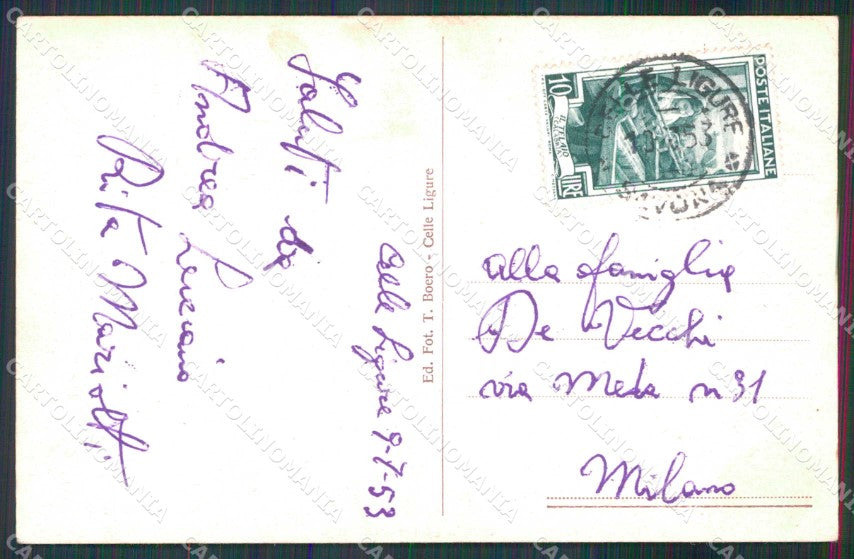 Saluti da
Andrea Luciano
Rita Mariotti
Celle Ligure 9-7-53
Ed. Fot. T. Boero - Celle Ligure
POSTE ITALIANE
10
LIRE
CELLE LIGURE
SAVONA
alla famiglia
De Vecchi
via Meda n 31
Milano
CARTOLINOMANIA